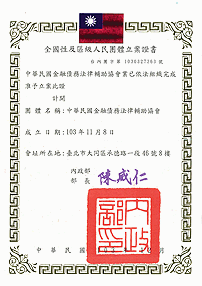 全國性及區級人民團體立案證書
台內團字第1030327263號
中華民國金融債務法律輔助協會業已依法組織完成
准予立案此證
計開
團體名稱：中華民國金融債務法律輔助協會
成立日期：103年11月8日
會址所在地：臺北市大同區承德路一段46號8樓
內政部
部長 陳威仁
內政部印
中華民國